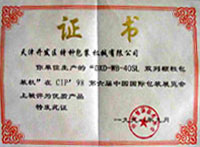 证书
天津开发区特种包装机械有限公司
你单位生产的“DXD-WB-40SL 双列颗粒包
装机”在 CIP'98 第六届中国国际包装展览会
上被评为优秀产品
特发此证